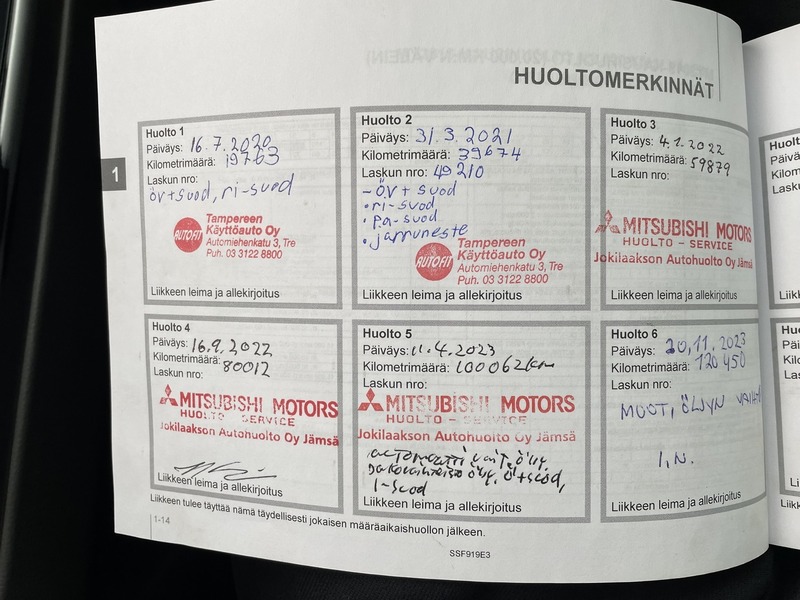 HUOLTOMERKINNÄT
1
Huolto 1
Päiväys: 16.7.2020
Kilometrimäärä: 19763
Laskun nro:
öv+suod, ri-suod
AUTOFIT
Tampereen
Käyttöauto Oy
Automiehenkatu 3, Tre
Puh. 03 3122 8800
Liikkeen leima ja allekirjoitus
Huolto 2
Päiväys: 31.3.2021
Kilometrimäärä: 39674
Laskun nro: 49210
-öv+suod
•ri-suod
•pa-suod
•jarruneste
AUTOFIT
Tampereen
Käyttöauto Oy
Automiehenkatu 3, Tre
Puh. 03 3122 8800
Liikkeen leima ja allekirjoitus
Huolto 3
Päiväys: 4.1.2022
Kilometrimäärä: 59879
Laskun nro:
MITSUBISHI MOTORS
HUOLTO - SERVICE
Jokilaakson Autohuolto Oy Jämsä
Liikkeen leima ja allekirjoitus
Huolto 4
Päiväys: 16.9.2022
Kilometrimäärä: 80012
Laskun nro:
MITSUBISHI MOTORS
HUOLTO - SERVICE
Jokilaakson Autohuolto Oy Jämsä
Liikkeen leima ja allekirjoitus
Huolto 5
Päiväys: 11.4.2023
Kilometrimäärä: 100062km
Laskun nro:
MITSUBISHI MOTORS
HUOLTO - SERVICE
Jokilaakson Autohuolto Oy Jämsä
automaatti vaiht. öljy,
öljy, ö+suod,
i-suod
Liikkeen leima ja allekirjoitus
Huolto 6
Päiväys: 20.11.2023
Kilometrimäärä: 120450
Laskun nro:
MOOT. ÖLJYN
I.N.
Liikkeen leima ja allekirjoitus
Liikkeen tulee täyttää nämä täydellisesti jokaisen määräaikaishuollon jälkeen.
1-14
SSF919E3